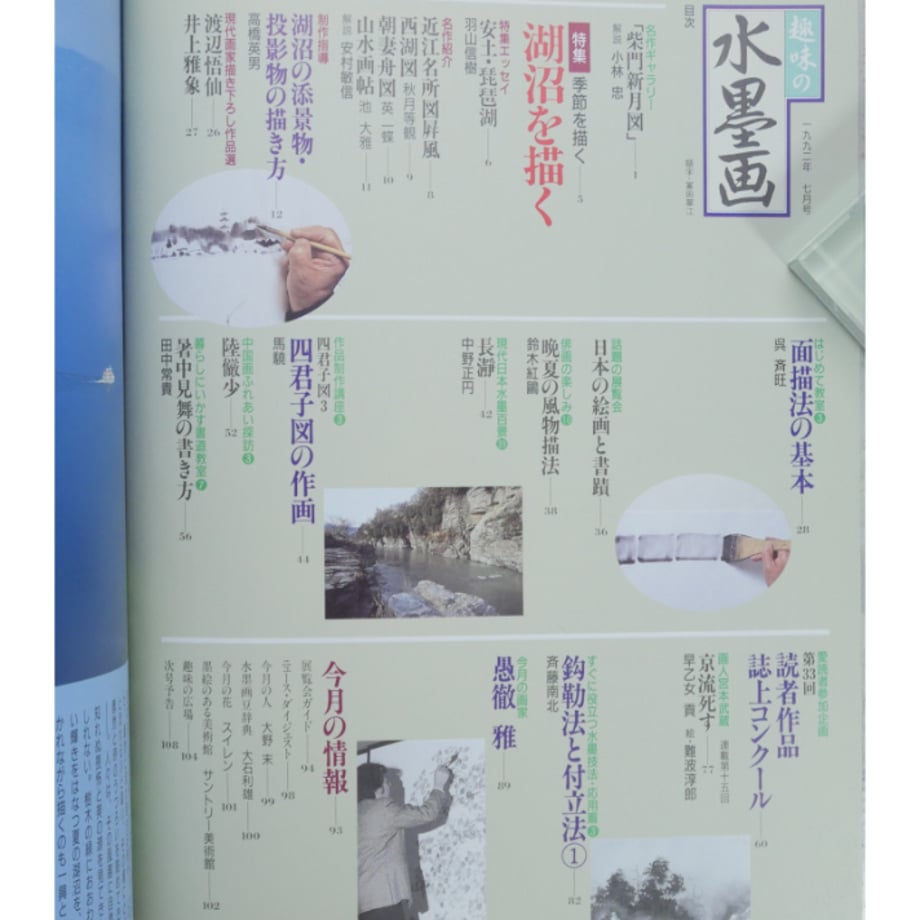 趣味の
水墨画
一九九二年 七月号
目次
名作ギャラリー
「柴門新月図」
解説 小林 忠
1
特集 季節を描く
5
湖沼を描く
特集エッセイ
安土・琵琶湖
6
羽山信樹
名作紹介
近江名所図屏風
8
西湖図 秋月等観
9
朝妻舟図 英 一蝶
10
山水画帖 池 大雅
11
解説 安村敏信
制作指導
湖沼の添景物・
投影物の描き方
12
高橋英男
現代画家描き下ろし作品選
渡辺悟仙
26
井上雅象
27
はじめて教室③
面描法の基本
28
呉 斉旺
話題の展覧会
日本の絵画と書蹟
36
俳画の楽しみ⑯
晩夏の風物描法
38
鈴木紅鷗
現代日本水墨百景
長瀞
42
中野正円
作品制作講座③
四君子図3
四君子図の作画
44
馬驍
中国画ふれあい探訪③
陸儼少
52
暮らしにいかす書道教室⑦
暑中見舞の書き方
56
田中常貴
愛読者参加企画
第33回
読者作品
誌上コンクール
60
画人宮本武蔵 連載第十五回
京流死す
77
早乙女 貢 絵・難波淳郎
すぐに役立つ水墨技法・応用篇③
鈎勒法と付立法①
82
斉藤南北
今月の画家
愚徹 雅
89
今月の情報
93
展覧会ガイド
94
ニュース・ダイジェスト
98
今月の人 大野 末
99
水墨画豆辞典 大石利雄
100
今月の花 スイレン
101
墨絵のある美術館 サントリー美術館
102
趣味の広場
104
次号予告
108
しれない。樹木の緑におおわ
い輝きをはなつ夏の湖沼を、
かれながら描くのも一興と